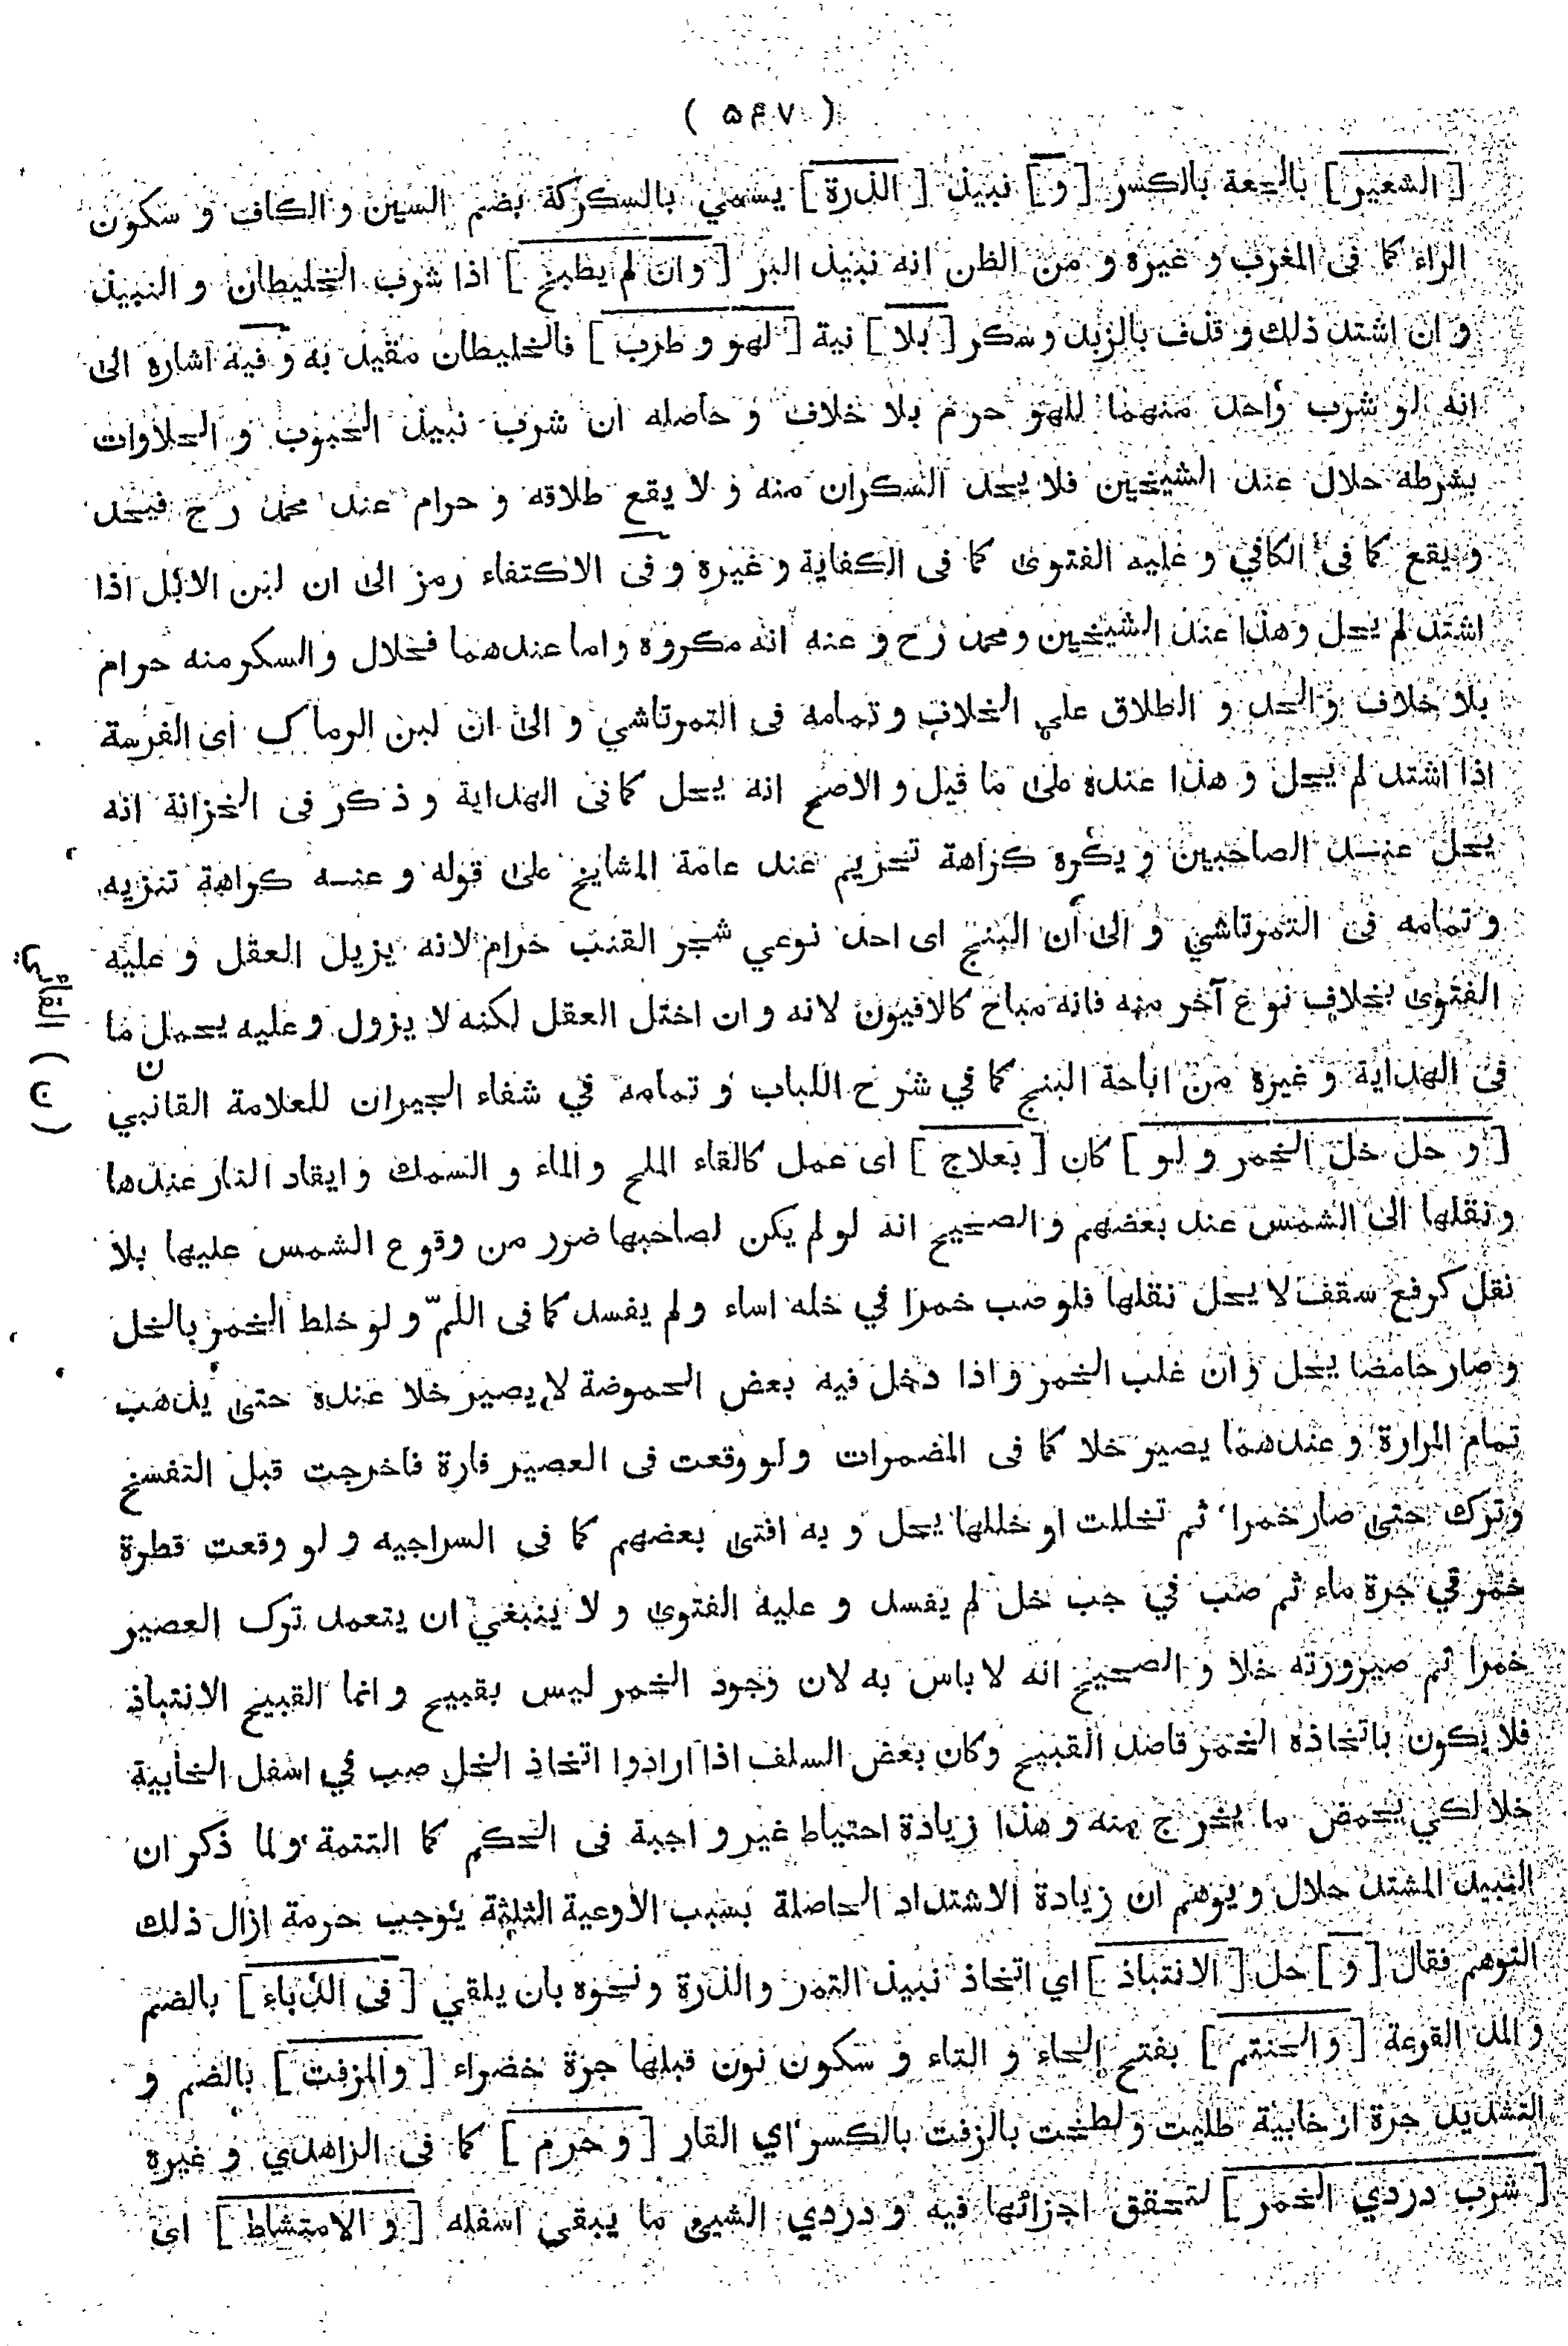 ( ٥٤٧ )
[ الشعير ] بالجعة بالكسر [ و ] نبيذ [ الذرة ] يسمي بالسكركة بضم السين و الكاف و سكون
الراء كما فى المغرب و غيره و من الظن انه نبيذ البر [ و ان لم يطبخ ] اذا شرب الخليطان و النبيذ
و ان اشتد ذلك و قذف بالزبد و سكر [ بلا ] نية [ لهو و طرب ] فالخليطان مقيد به و فيه اشارة الى
انه لو شرب واحد منهما للهو حرم بلا خلاف و حاصله ان شرب نبيذ الحبوب و الحلاوات
بشرطه حلال عند الشيخين فلا يحد السكران منه و لا يقع طلاقه و حرام عند محمد رح فيحد
و يقع كما فى الكافي و عليه الفتوى كما فى الكفاية و غيره و فى الاكتفاء رمز الى ان لبن الابل اذا
اشتد لم يحل و هذا عند الشيخين و محمد رح و عنه انه مكروه و اما عندهما فحلال و السكر منه حرام
بلا خلاف و الحد و الطلاق علي الخلاف و تمامه فى التمرتاشي و الى ان لبن الرماك اى الفرسة
اذا اشتد لم يحل و هذا عنده على ما قيل و الاصح انه يحل كما فى الهداية و ذكر فى الخزانة انه
يحل عند الصاحبين و يكره كراهة تحريم عند عامة المشايخ على قوله و عنه كراهة تنزيه
و تمامه فى التمرتاشي و الى ان البنج اى احد نوعي شجر القنب حرام لانه يزيل العقل و عليه
الفتوى بخلاف نوع آخر منه فانه مباح كالافيون لانه و ان اختل العقل لكنه لا يزول و عليه يحمل ما
فى الهداية و غيره من اباحة البنج كما في شرح اللباب و تمامه في شفاء الجيران للعلامة القانبي
ن
( ن ) القائني
[ و حل خل الخمر و لو ] كان [ بعلاج ] اى عمل كالقاء الملح و الماء و السمك و ايقاد النار عندها
و نقلها الى الشمس عند بعضهم و الصحيح انه لو لم يكن لصاحبها ضرر من وقوع الشمس عليها بلا
نقل كرفع سقف لا يحل نقلها فلو صب خمرا في خله اساء و لم يفسد كما فى اللمّ و لو خلط الخمر بالخل
و صار حامضا يحل و ان غلب الخمر و اذا دخل فيه بعض الحموضة لا يصير خلا عنده حتى يذهب
تمام المرارة و عندهما يصير خلا كما فى المضمرات و لو وقعت فى العصير فارة فاخرجت قبل التفسخ
و ترك حتى صار خمرا ثم تخللت او خللها يحل و به افتى بعضهم كما فى السراجيه و لو وقعت قطرة
خمر في جرة ماء ثم صب في جب خل لم يفسد و عليه الفتوى و لا ينبغي ان يتعمد ترك العصير
خمرا ثم صيرورته خلا و الصحيح انه لا باس به لان وجود الخمر ليس بقبيح و انما القبيح الانتباذ
فلا يكون باتخاذه الخمر قاصد القبيح و كان بعض السلف اذا ارادوا اتخاذ الخل صب في اسفل الخابية
خلا لكي يحمض ما يخرج منه و هذا زيادة احتياط غير واجبة فى الحكم كما التتمة و لما ذكر ان
النبيذ المشتد حلال و يوهم ان زيادة الاشتداد الحاصلة بسبب الاوعية الثلثة يوجب حرمة ازال ذلك
التوهم فقال [ و ] حل [ الانتباذ ] اي اتخاذ نبيذ التمر و الذرة و نحوه بان يلقي [ فى الدباء ] بالضم
و المد القرعة [ و الحنتم ] بفتح الحاء و التاء و سكون نون قبلها جرة خضراء [ و المزفت ] بالضم و
التشديد جرة او خابية طليت و لطخت بالزفت بالكسر اي القار [ و حرم ] كما فى الزاهدي و غيره
[ شرب دردي الخمر ] لتحقق اجزائها فيه و دردي الشيئ ما يبقى اسفله [ و الامتشاط ] اى